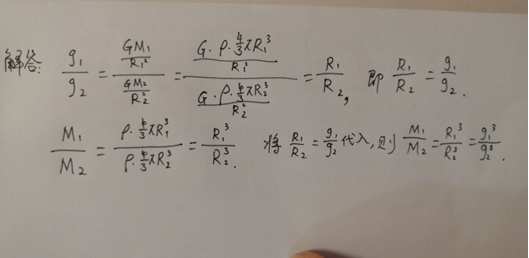 解答: \frac{g_1}{g_2} = \frac{\frac{GM_1}{R_1^2}}{\frac{GM_2}{R_2^2}} = \frac{\frac{G·ρ·\frac{4}{3}πR_1^3}{R_1^2}}{\frac{G·ρ·\frac{4}{3}πR_2^3}{R_2^2}} = \frac{R_1}{R_2}, 即 \frac{R_1}{R_2} = \frac{g_1}{g_2}.
\frac{M_1}{M_2} = \frac{ρ·\frac{4}{3}πR_1^3}{ρ·\frac{4}{3}πR_2^3} = \frac{R_1^3}{R_2^3}. 将 \frac{R_1}{R_2} = \frac{g_1}{g_2} 代入, 则 \frac{M_1}{M_2} = \frac{R_1^3}{R_2^3} = \frac{g_1^3}{g_2^3}.